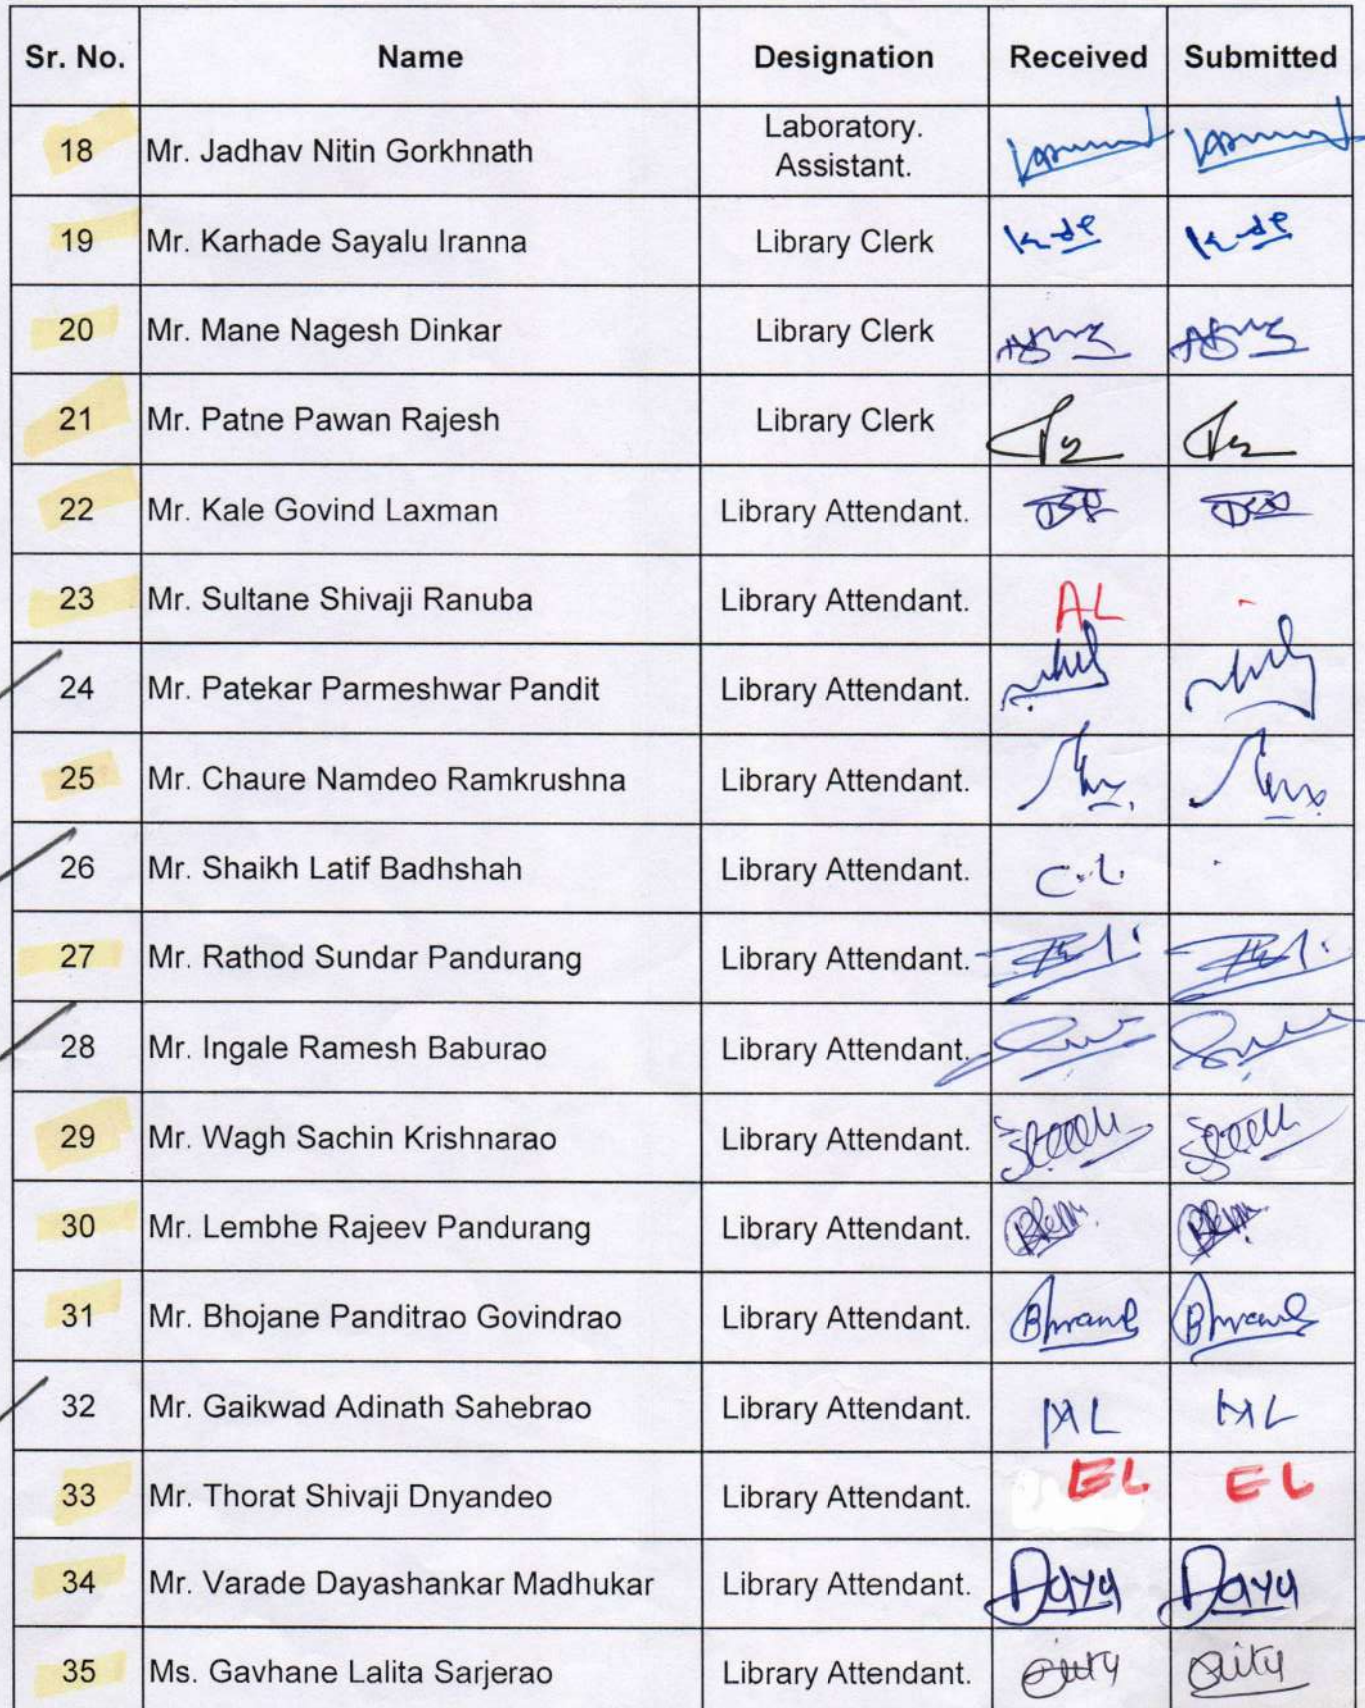 Sr. No. Name Designation Received Submitted
18 Mr. Jadhav Nitin Gorkhnath Laboratory. Assistant.
19 Mr. Karhade Sayalu Iranna Library Clerk
20 Mr. Mane Nagesh Dinkar Library Clerk
21 Mr. Patne Pawan Rajesh Library Clerk
22 Mr. Kale Govind Laxman Library Attendant.
23 Mr. Sultane Shivaji Ranuba Library Attendant. AL -
24 Mr. Patekar Parmeshwar Pandit Library Attendant.
25 Mr. Chaure Namdeo Ramkrushna Library Attendant.
26 Mr. Shaikh Latif Badhshah Library Attendant. C.L.
27 Mr. Rathod Sundar Pandurang Library Attendant.
28 Mr. Ingale Ramesh Baburao Library Attendant.
29 Mr. Wagh Sachin Krishnarao Library Attendant.
30 Mr. Lembhe Rajeev Pandurang Library Attendant.
31 Mr. Bhojane Panditrao Govindrao Library Attendant.
32 Mr. Gaikwad Adinath Sahebrao Library Attendant. ML ML
33 Mr. Thorat Shivaji Dnyandeo Library Attendant. EL EL
34 Mr. Varade Dayashankar Madhukar Library Attendant. Daya Daya
35 Ms. Gavhane Lalita Sarjerao Library Attendant.